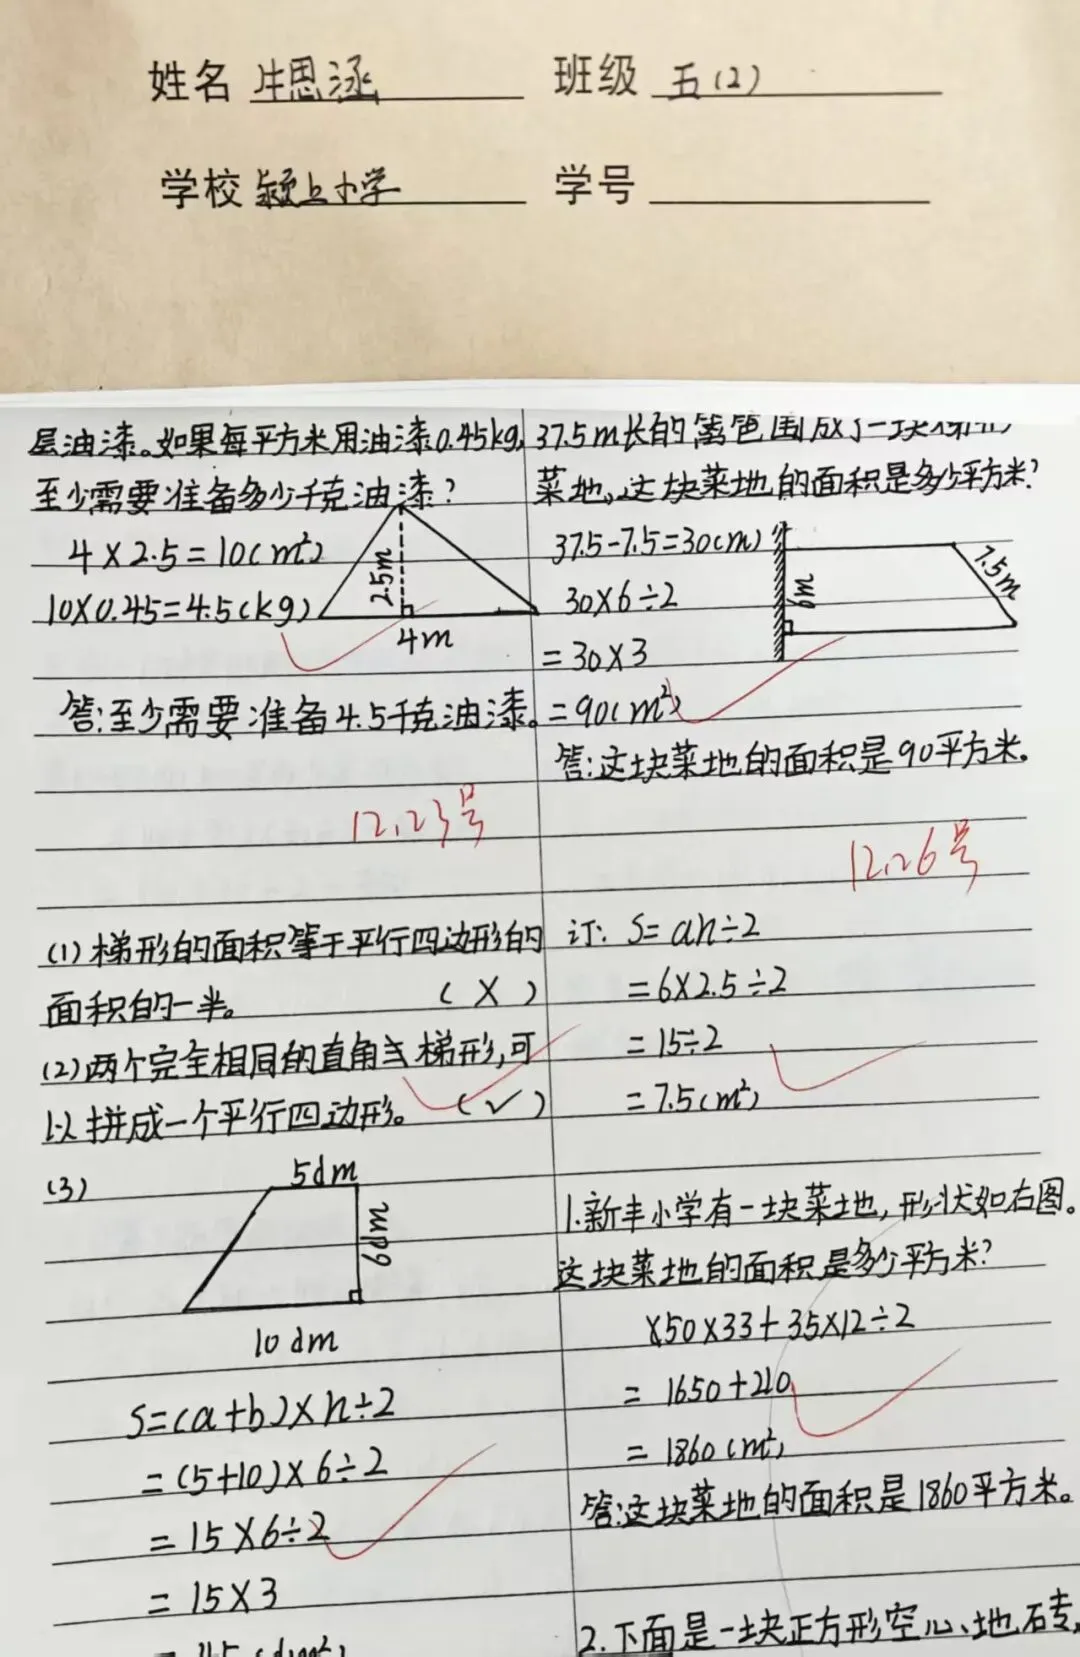 姓名 牛思涵 班级 五(2)
学校 颍上小学 学号
层油漆。如果每平方米用油漆0.45kg,
至少需要准备多少千克油漆?
4×2.5=10(m²)
10×0.45=4.5(kg)
2.5m
4m
答:至少需要准备4.5千克油漆。
12.23号
(1)梯形的面积等于平行四边形的
面积的一半。 (×)
(2)两个完全相同的直角梯形,可
以拼成一个平行四边形。 (√)
(3)
5dm
6dm
10dm
S=(a+b)×h÷2
=(5+10)×6÷2
=15×6÷2
=15×3
=45(dm²)
37.5m长的篱笆围成了一块梯形
菜地,这块菜地的面积是多少平方米?
37.5-7.5=30(m)
30×6÷2
=30×3
=90(m²)
6m
7.5m
答:这块菜地的面积是90平方米。
12.26号
订: S=ah÷2
=6×2.5÷2
=15÷2
=7.5(m²)
1.新丰小学有一块菜地,形状如右图。
这块菜地的面积是多少平方米?
50×33+35×12÷2
= 1650+210
= 1860(m²)
答:这块菜地的面积是1860平方米。
2.下面是一块正方形空心地砖,